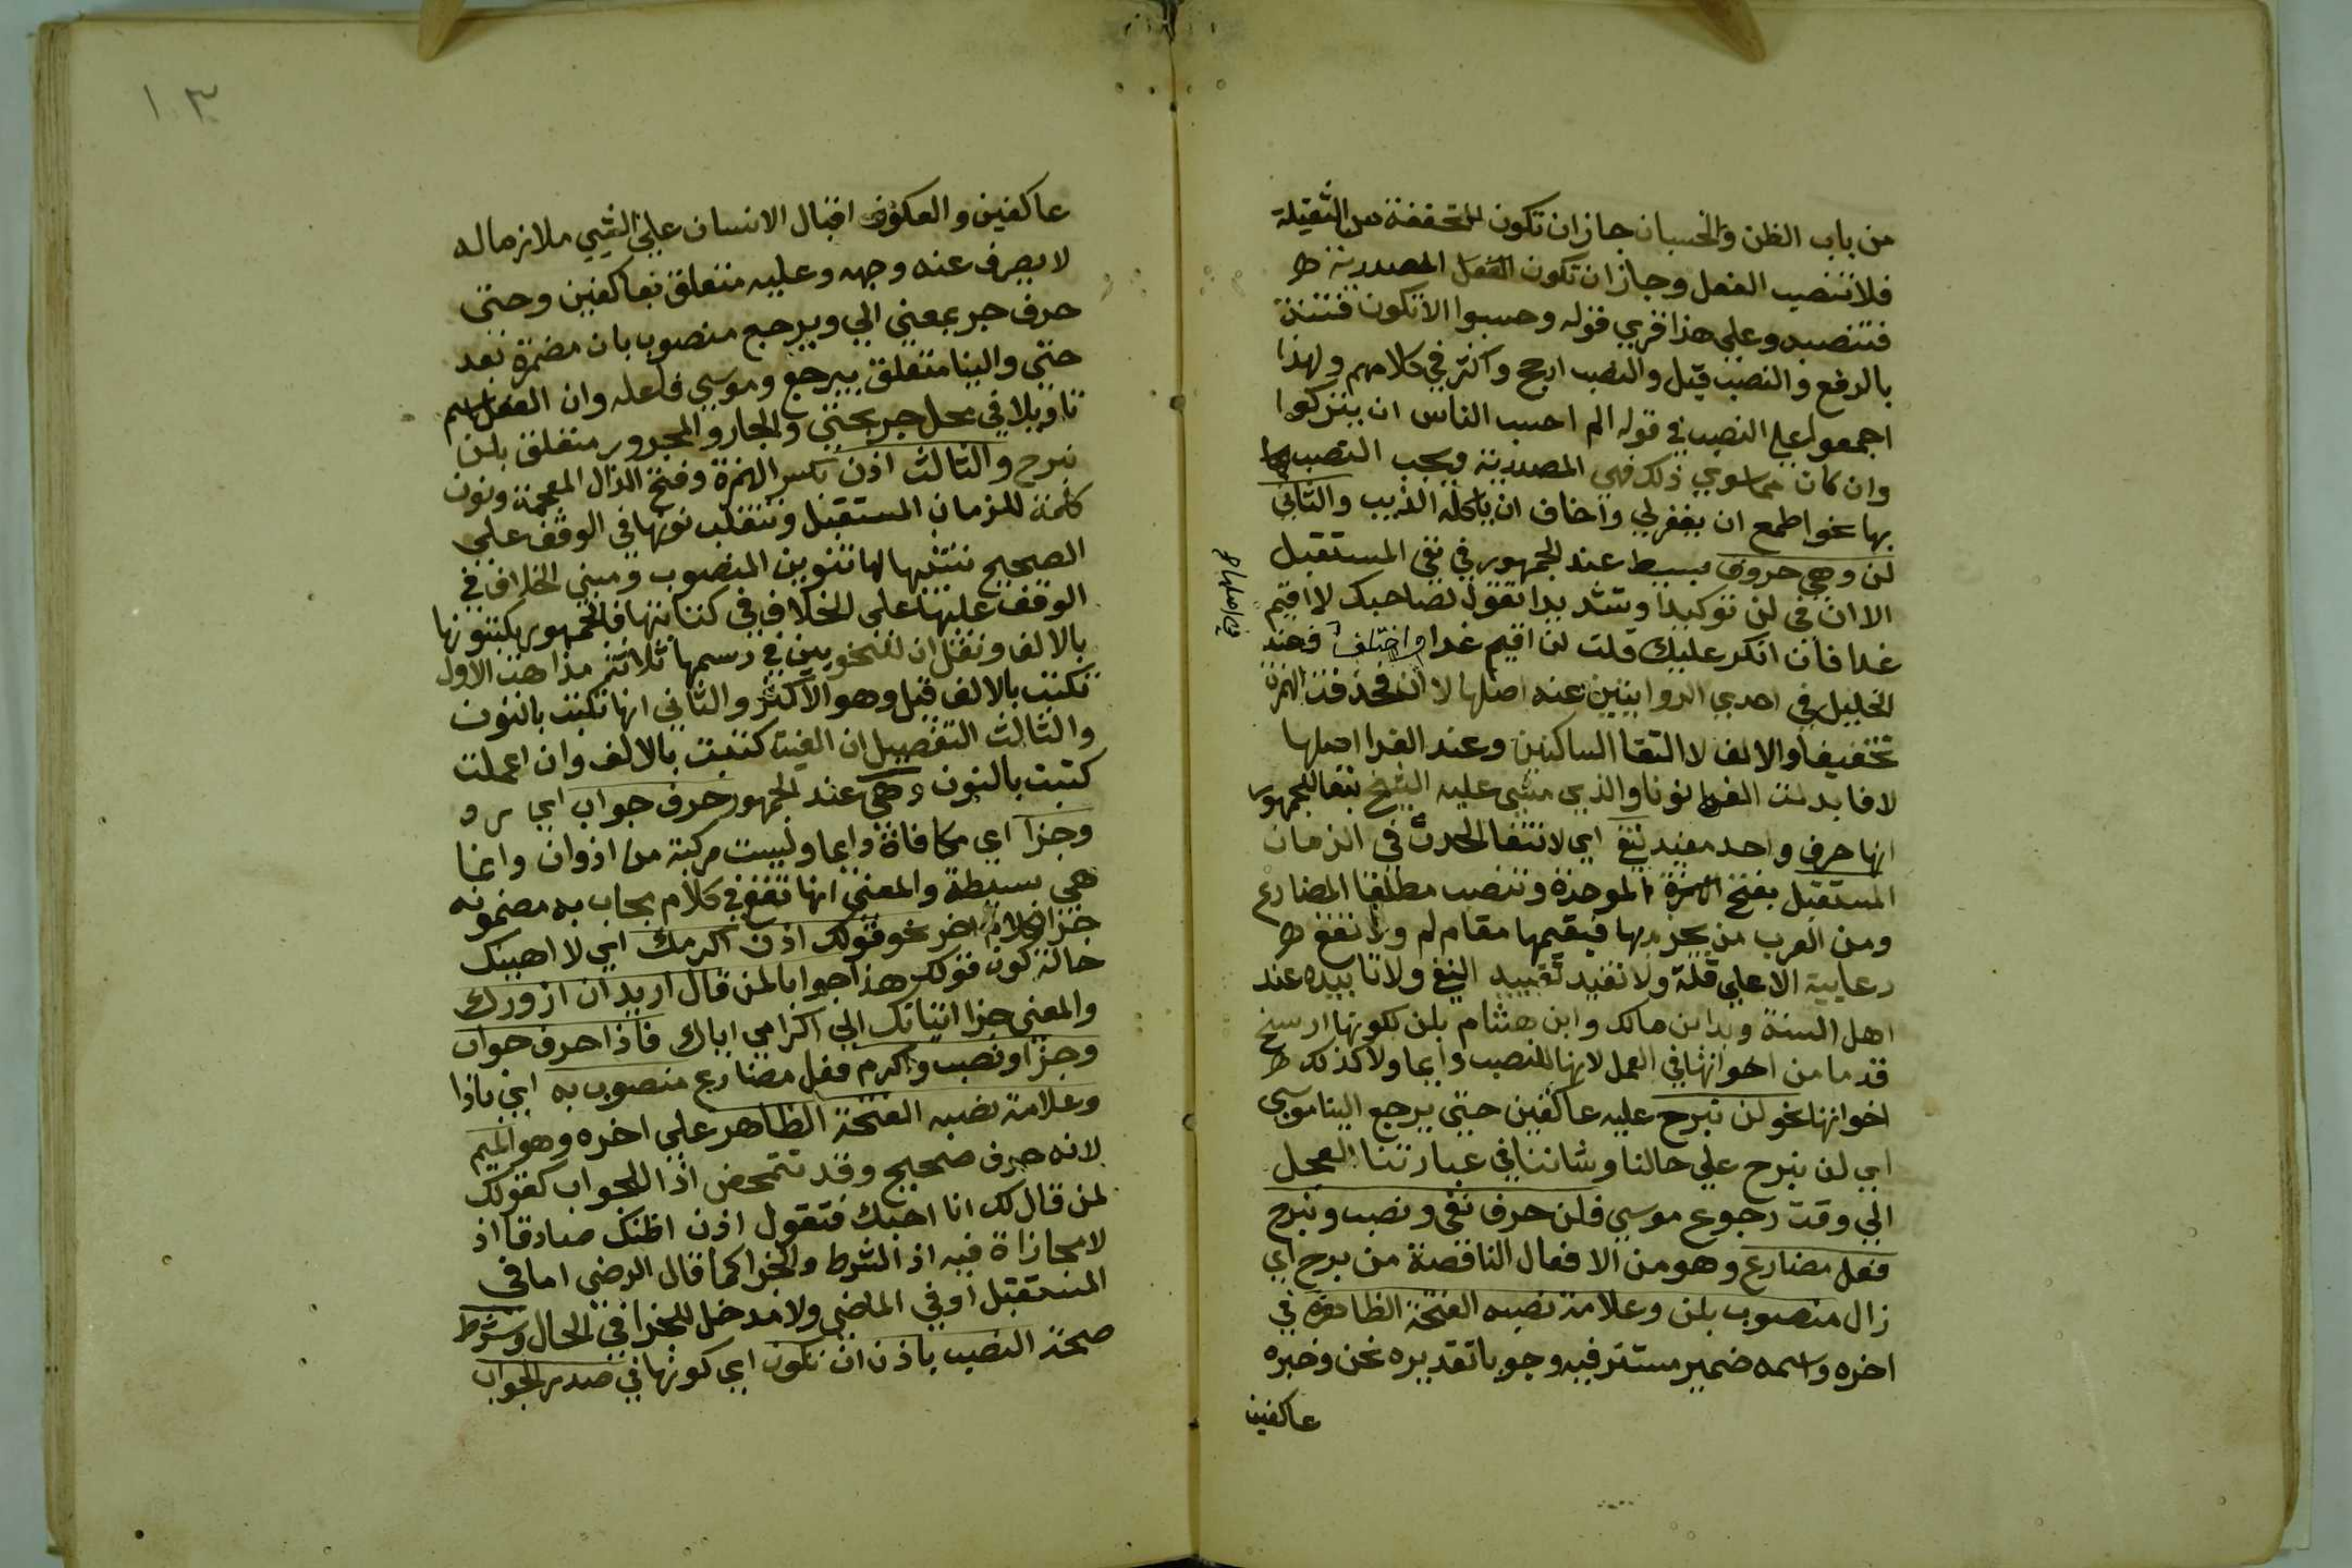 من باب الظن والحسبان جازان تكون المخففة من الثقيلة
فلاتنصب الفعل وجازان تكون الفعل المصدرية
فتنصبه وعلى هذا قري قوله وحسبوا الاتكون فتنة
بالرفع والنصب قيل والنصب ارجح واكثر في كلامهم ولهذا
اجمعوا على النصب في قوله الم احسب الناس ان يتركوا
وان كان مما سوي ذلك فهي المصدرية ويجب النصب
بها نحو اطمع ان يغفر لي واخاف ان ياكله الذيب والثاني
لن وهي حروف بسيط عند الجمهور في نفي المستقبل
الا ان في لن توكيدا وتشديدا تقول لصاحبك لا اقيم
غدا فان انكر عليك قلت لن اقيم غدا واختلف فعند
في اصلها
الخليل في احدي الروايتين عنه اصلها لا ان فحذفت الهمزة
تخفيفا والالف لالتقا الساكنين وعند الفرا اصلها
لا فابدلت الفها نونا والذي مشى عليه الشيخ تبعا للجمهور
انها حرف واحد مفيد نفي اي لانتفا الحدث في الزمان
المستقبل بفتح الهمزة الموحدة وتنصب مطلقا المضارع
ومن العرب من يجزم بها فيقيمها مقام لم ولا تقع
دعايية الا على قلة ولا تفيد تقييد النفي ولا تابيده عند
اهل السنة وبدا ابن مالك وابن هشام بلن لكونها ارسخ
قدما من اخواتها في العمل لانها للنصب دايما ولا كذلك
اخواتها نحو لن نبرح عليه عاكفين حتى يرجع الينا موسى
اي لن نبرح على حالنا وشاننا في عبادتنا العجل
الي وقت رجوع موسي فلن حرف نفي ونصب ونبرح
فعل مضارع وهو من الافعال الناقصة من برح اي
زال منصوب بلن وعلامة نصبه الفتحة الظاهرة في
اخره واسمه ضمير مستتر فيه وجوبا تقديره نحن وخبره
عاكفين
١٠٣
عاكفين والعكوف اقبال الانسان على الشي ملازما له
لا يصرف عنه وجهه وعليه متعلق بعاكفين وحتى
حرف جر بمعني الي ويرجع منصوب بان مضمرة بعد
حتي والينا متعلق بيرجع وموسي فاعله وان الفعل اسم
تاويلا في محل جر بحتي والجار والمجرور متعلق بلن
نبرح والثالث اذن بكسر الهمزة وفتح الذال المعجمة ونون
كلمة للزمان المستقبل وتنقلب نونها في الوقف علي
الصحيح تشبيها لها تنوين المنصوب ومبني الخلاف في
الوقف عليها على الخلاف في كتابتها فالجمهور يكتبونها
بالالف ونقل ان للنحويين في رسمها ثلاثة مذاهب الاول
تكتب بالالف قيل وهو الاكثر والثاني انها تكتب بالنون
والثالث التفصيل ان الغيت كتبت بالالف وان اعملت
كتبت بالنون وهي عند الجمهور حرف جواب اي رد
وجزآ اي مكافاة دايما وليست مركبة من اذ وان وانما
هي بسيطة والمعني انها تقع في كلام يجاب به مضمونه
جزا لكلام اخر نحو قولك اذن اكرمك اي لا اهينك
حالة كون قولك هذا جوابا لمن قال اريد ان ازورك
والمعني جزا اتيانك الي اكرامي اياك فاذا حرف جواب
وجزا ونصب واكرم فعل مضارع منصوب به اي باذا
وعلامة نصبه الفتحة الظاهر علي اخره وهو الميم
لانه حرف صحيح وقد تتمحض اذا للجواب كقولك
لمن قال لك انا احبك فتقول اذن اظنك صادقا اذ
لا مجازاة فيه اذ الشرط والجزا كما قال الرضى اما في
المستقبل او في الماضي ولا مدخل للجزا في الحال وشرط
صحة النصب باذن ان تكون اي كونها في صدر الجواب